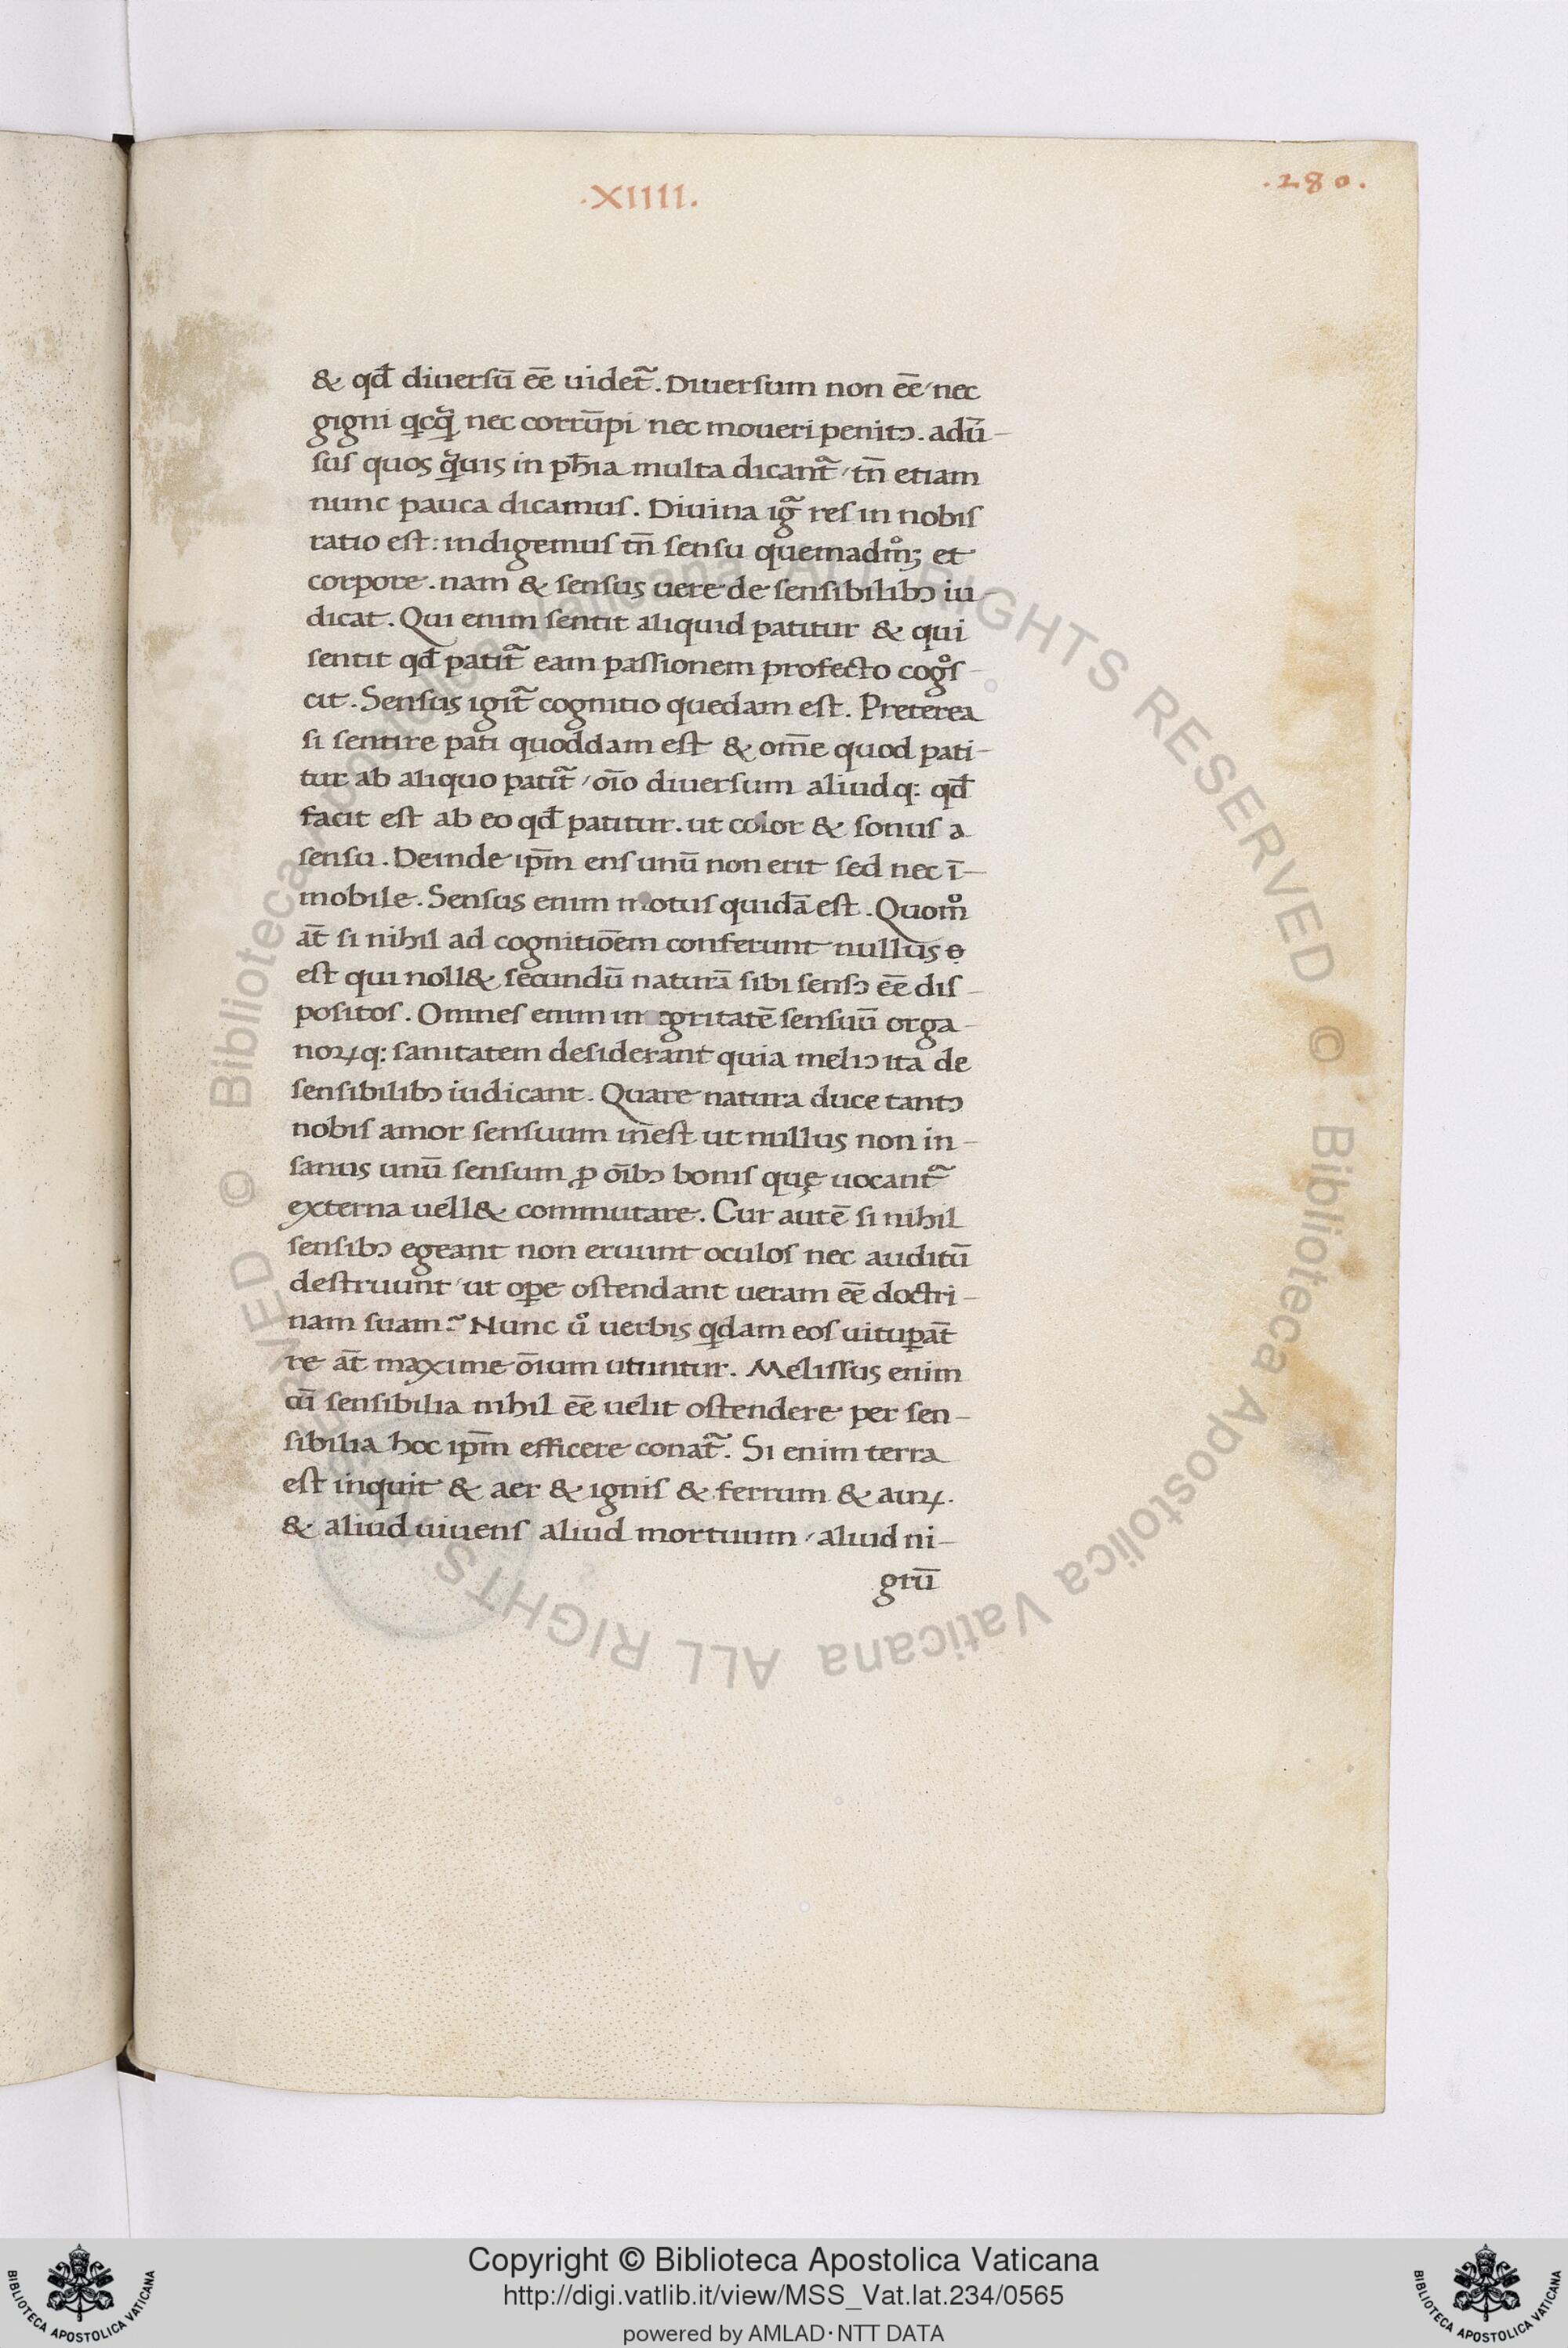 ·XIIII.
.280.
& qđ diuersū ēē uidet᷑. Diuersum non ēē / nec
gigni qcq̄ nec corrūpi / nec moueri penitꝰ. adū-
sus quos q̄uis in pħia multa dicant᷑ / tn̄ etiam
nunc pauca dicamus. Diuina ig᷑ res in nobis
ratio est: indigemus tn̄ sensu quemadmͦꝫ et
corpore. nam & sensus uere de sensibilibꝰ iu-
dicat. Qui enim sentit aliquid patitur & qui
sentit qđ patit᷑ eam passionem profecto cogͦs-
cit. Sensus igit᷑ cognitio quedam est. Preterea
si sentire pati quoddam est & om̄e quod pati-
tur ab aliquo patit᷑ / oīo diuersum aliudq: qđ
facit est ab eo qđ patitur. ut color & sonus a
sensu. Deinde ip̄m ens unū non erit sed nec ī-
mobile. Sensus enim motus quidā est. Quomͦ
at̄ si nihil ad cognitiōem conferunt nullus
est qui noll& secundū naturā sibi sensꝰ ēē dis-
positos. Omnes enim integritatē sensuū orga-
noꝝq: sanitatem desiderant quia meliꝰ ita de
sensibilibꝰ iudicant. Quare natura duce tantꝰ
nobis amor sensuum inest ut nullus non in-
sanus unū sensum ꝓ oībꝰ bonis quę uocant᷑
externa uell& commutare. Cur autē si nihil
sensibꝰ egeant non eruunt oculos nec auditū
destruunt / ut oꝑe ostendant ueram ēē doctri-
nam suam? Nunc uͦ uerbis qdam eos uituꝑat̄
re at̄ maxime ōium utuntur. Melissus enim
cū sensibilia nihil ēē uelit ostendere per sen-
sibilia hoc ip̄m efficere conat᷑. Si enim terra
est inquit & aer & ignis & ferrum & auꝝ.
& aliud uiuens aliud mortuum / aliud ni-
grū
Copyright © Biblioteca Apostolica Vaticana
http://digi.vatlib.it/view/MSS_Vat.lat.234/0565
powered by AMLAD·NTT DATA
BIBLIOTECA APOSTOLICA VATICANA
BIBLIOTECA APOSTOLICA VATICANA
© Biblioteca Apostolica Vaticana ALL RIGHTS RESERVED © Biblioteca Apostolica Vaticana ALL RIGHTS RESERVED